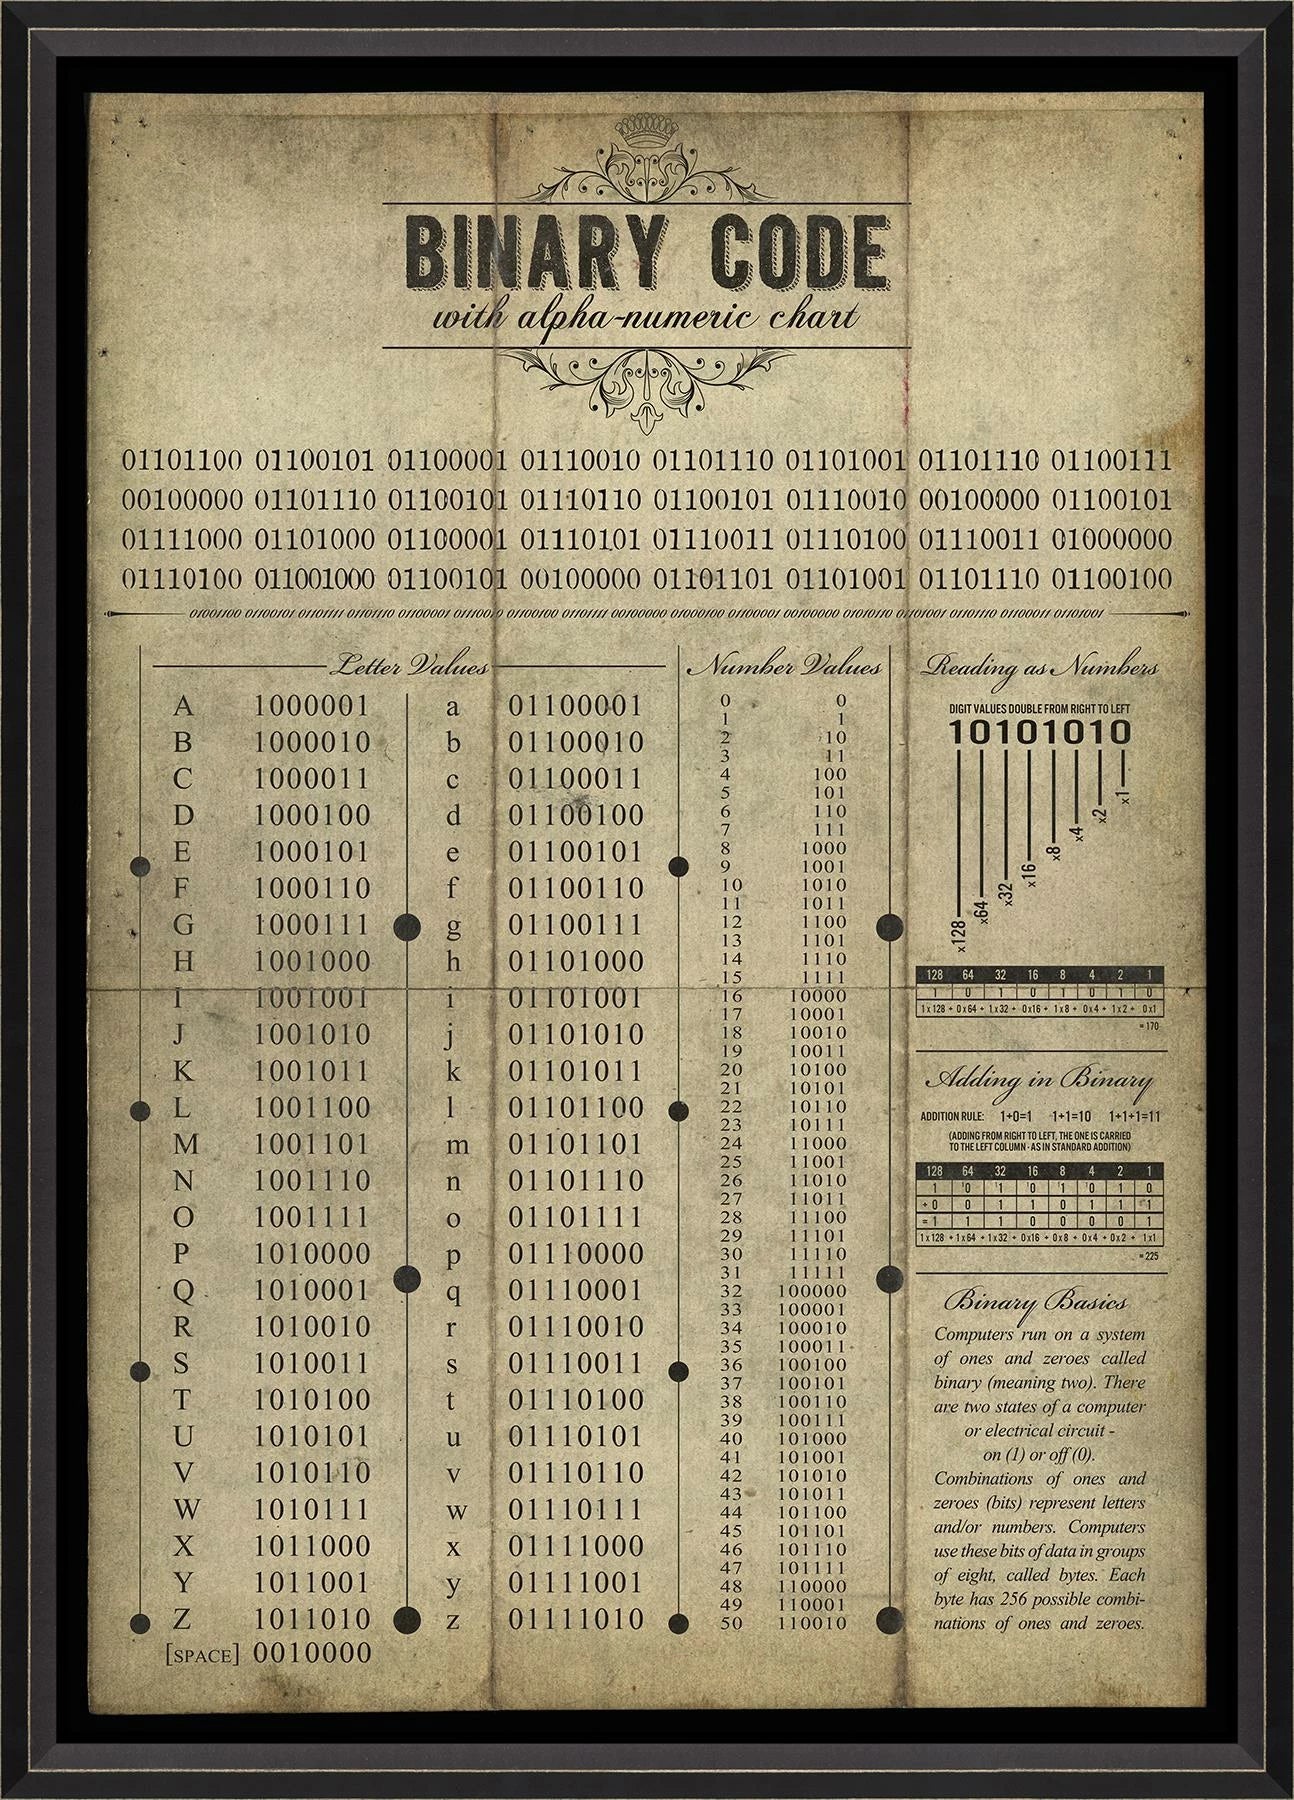 BINARY CODE
with alpha-numeric chart
01101100 01100101 01100001 01110010 01101110 01101001 01101110 01100111
00100000 01101110 01100101 01110110 01100101 01110010 00100000 01100101
01111000 01101000 01100001 01110101 01110011 01110100 01110011 01000000
01110100 011001000 01100101 00100000 01101101 01101001 01101110 01100100
01001100 01100101 01101111 01101110 01100001 01110010 01100100 01101111 00100000 01000100 01100001 00100000 01010110 01101001 01101110 01100011 01101001
Letter Values
A 1000001 a 01100001
B 1000010 b 01100010
C 1000011 c 01100011
D 1000100 d 01100100
E 1000101 e 01100101
F 1000110 f 01100110
G 1000111 g 01100111
H 1001000 h 01101000
I 1001001 i 01101001
J 1001010 j 01101010
K 1001011 k 01101011
L 1001100 l 01101100
M 1001101 m 01101101
N 1001110 n 01101110
O 1001111 o 01101111
P 1010000 p 01110000
Q 1010001 q 01110001
R 1010010 r 01110010
S 1010011 s 01110011
T 1010100 t 01110100
U 1010101 u 01110101
V 1010110 v 01110110
W 1010111 w 01110111
X 1011000 x 01111000
Y 1011001 y 01111001
Z 1011010 z 01111010
[SPACE] 0010000
Number Values
0 0
1 1
2 10
3 11
4 100
5 101
6 110
7 111
8 1000
9 1001
10 1010
11 1011
12 1100
13 1101
14 1110
15 1111
16 10000
17 10001
18 10010
19 10011
20 10100
21 10101
22 10110
23 10111
24 11000
25 11001
26 11010
27 11011
28 11100
29 11101
30 11110
31 11111
32 100000
33 100001
34 100010
35 100011
36 100100
37 100101
38 100110
39 100111
40 101000
41 101001
42 101010
43 101011
44 101100
45 101101
46 101110
47 101111
48 110000
49 110001
50 110010
Reading as Numbers
DIGIT VALUES DOUBLE FROM RIGHT TO LEFT
10101010
x128 x64 x32 x16 x8 x4 x2 x1
128 64 32 16 8 4 2 1
1 0 1 0 1 0 1 0
1x128 + 0x64 + 1x32 + 0x16 + 1x8 + 0x4 + 1x2 + 0x1
=170
Adding in Binary
ADDITION RULE: 1+0=1 1+1=10 1+1+1=11
(ADDING FROM RIGHT TO LEFT, THE ONE IS CARRIED
TO THE LEFT COLUMN - AS IN STANDARD ADDITION)
128 64 32 16 8 4 2 1
1 ¹0 ¹1 ¹0 ¹1 ¹0 1 0
+0 0 1 1 0 1 1 1
=1 1 1 0 0 0 0 1
1x128 + 1x64 + 1x32 + 0x16 + 0x8 + 0x4 + 0x2 + 1x1
=225
Binary Basics
Computers run on a system
of ones and zeroes called
binary (meaning two). There
are two states of a computer
or electrical circuit -
on (1) or off (0).
Combinations of ones and
zeroes (bits) represent letters
and/or numbers. Computers
use these bits of data in groups
of eight, called bytes. Each
byte has 256 possible combi-
nations of ones and zeroes.